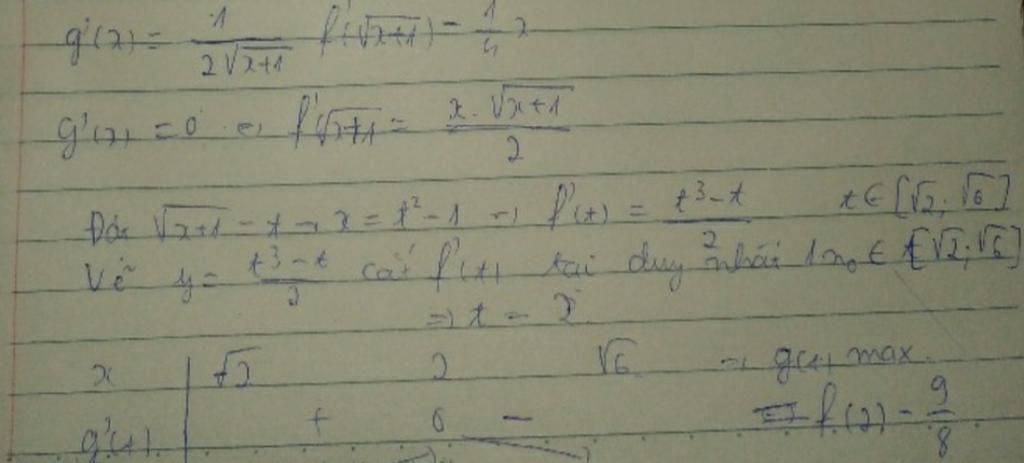 g'(x) = 1/(2√(x+1)) f'(√(x+1)) - 1/4 x
g'(x) = 0 ⇔ f'√(x+1) = (x.√(x+1))/2
Đặt √(x+1) = t → x = t² - 1 → f'(t) = (t³ - t)/2 t ∈ [√2; √6]
Vẽ y = (t³ - t)/2 cắt f'(t) tại duy nhất 1 n₀ ∈ [√2; √6]
⇒ t = 2
x √2 2 √6 → g(t) max
g'(t) + 0 - = f(2) - 9/8